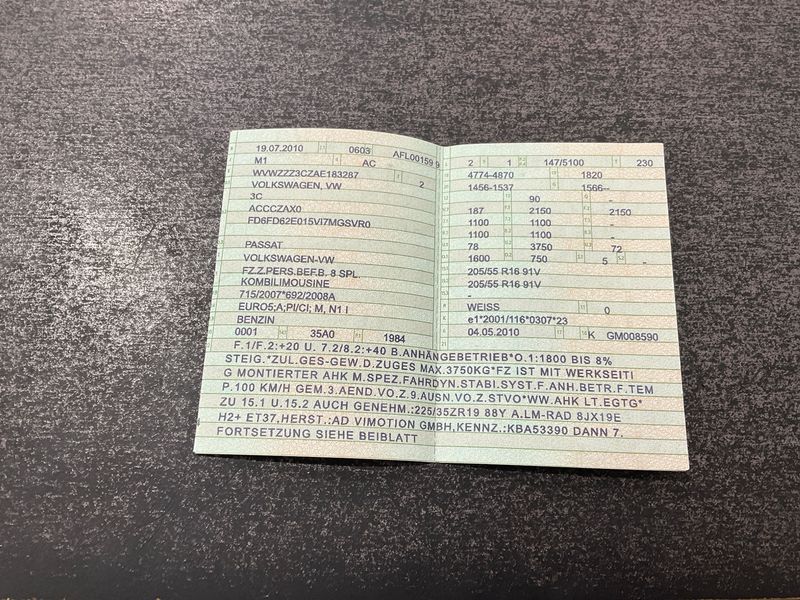 19.07.2010 0603 AFL00159 9
M1 AC
WVWZZZ3CZAE183287 2
VOLKSWAGEN, VW
3C
ACCCZAX0
FD6FD62E015VI7MGSVR0
PASSAT
VOLKSWAGEN-VW
FZ.Z.PERS.BEF.B. 8 SPL
KOMBILIMOUSINE
715/2007*692/2008A
EURO5;A;PI/CI; M, N1 I
BENZIN
0001 35A0 1984
2 1 147/5100 230
4774-4870 1820
1456-1537 1566--
90 -
187 2150 2150
1100 1100 -
1100 1100 -
78 3750 72
1600 750 5 -
205/55 R16 91V
205/55 R16 91V
-
WEISS 0
e1*2001/116*0307*23
04.05.2010 K GM008590
F.1/F.2:+20 U. 7.2/8.2:+40 B.ANHÄNGEBETRIEB*O.1:1800 BIS 8%
STEIG.*ZUL.GES-GEW.D.ZUGES MAX.3750KG*FZ IST MIT WERKSEITI
G MONTIERTER AHK M.SPEZ.FAHRDYN.STABI.SYST.F.ANH.BETR.F.TEM
P.100 KM/H GEM.3.AEND.VO.Z.9.AUSN.VO.Z.STVO*WW.AHK LT.EGTG*
ZU 15.1 U.15.2 AUCH GENEHM.:225/35ZR19 88Y A.LM-RAD 8JX19E
H2+ ET37,HERST.:AD VIMOTION GMBH,KENNZ.:KBA53390 DANN 7.
FORTSETZUNG SIEHE BEIBLATT